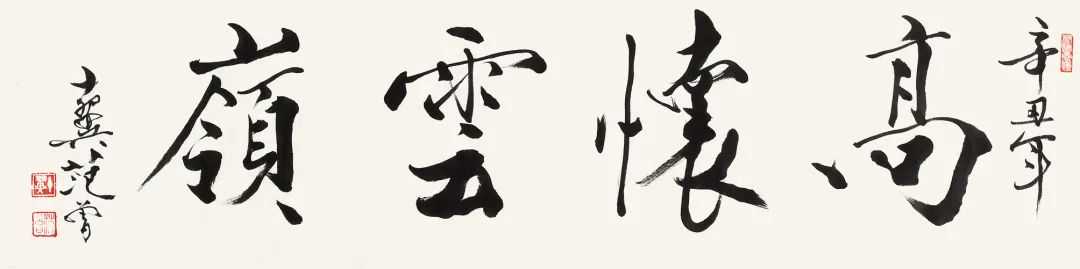 辛丑年
高懷雲嶺
十翼范曾